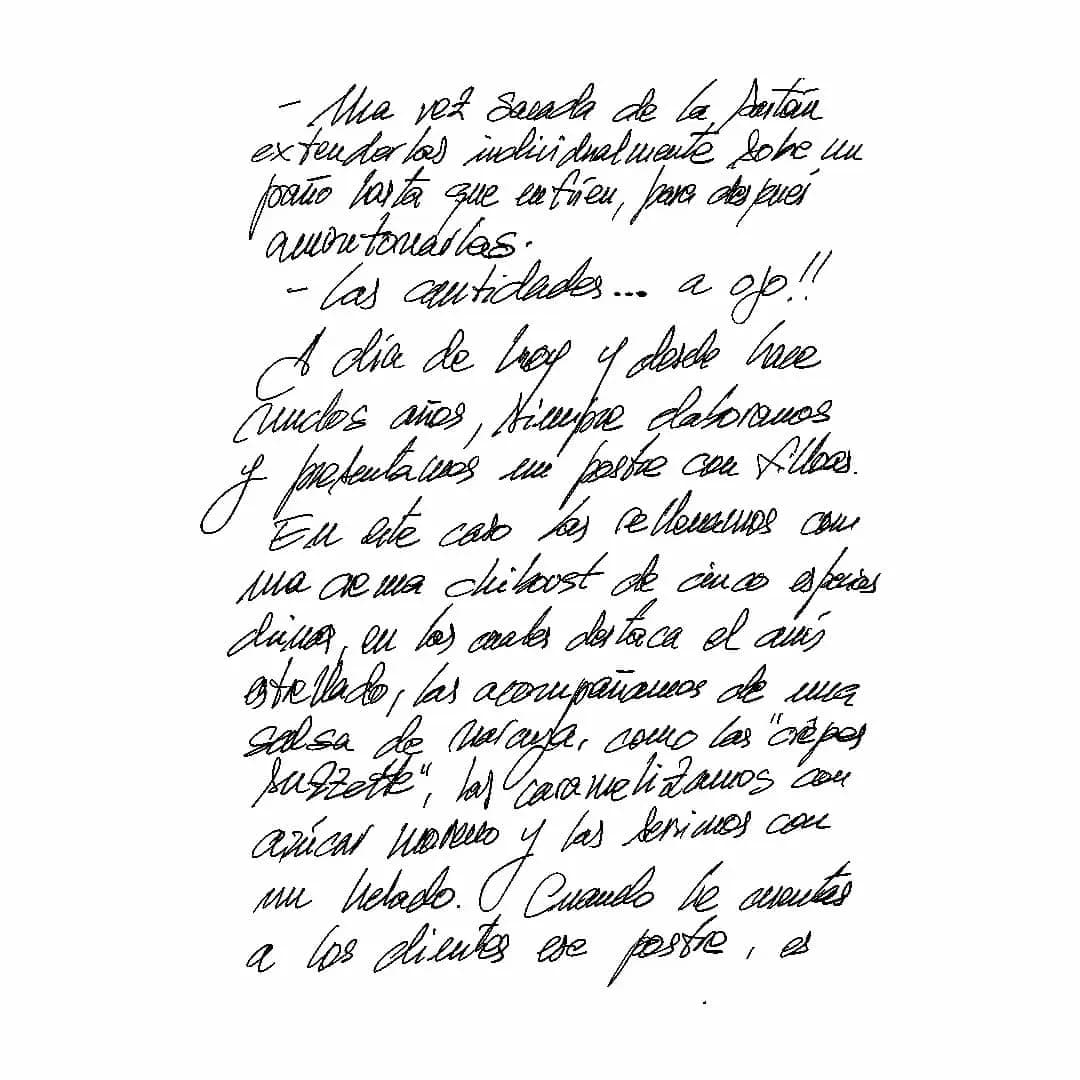 - Una vez sacada de la sartén
extenderlas individualmente sobre un
paño hasta que enfríen, para después
amontonarlas.
- Las cantidades... a ojo!!
A día de hoy y desde hace
muchos años, siempre elaboramos
y presentamos un postre con filloas.
En este caso las rellenamos con
una crema chiboust de cinco especias
chinas, en las cuales destaca el anís
estrellado, las acompañamos de una
salsa de naranja, como las "crêpes
suzzette", las caramelizamos con
azúcar moreno y las servimos con
un helado. Cuando le cuentas
a los clientes ese postre, es